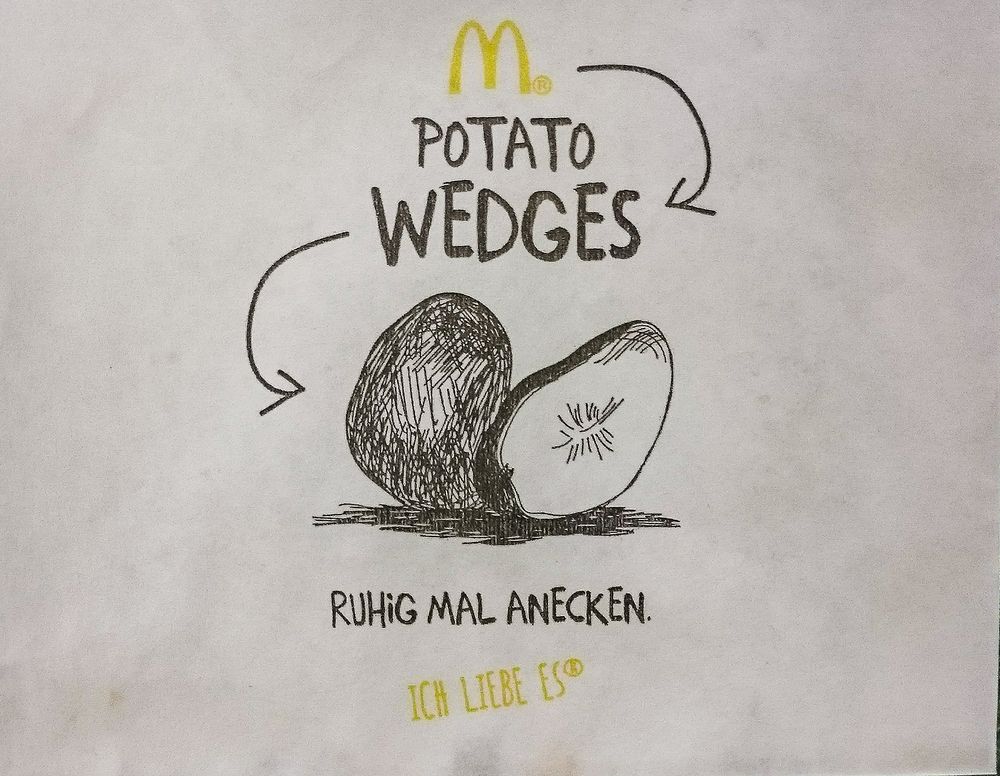 M®
POTATO
WEDGES
RUHiG MAL ANECKEN.
ICH LIEBE ES®